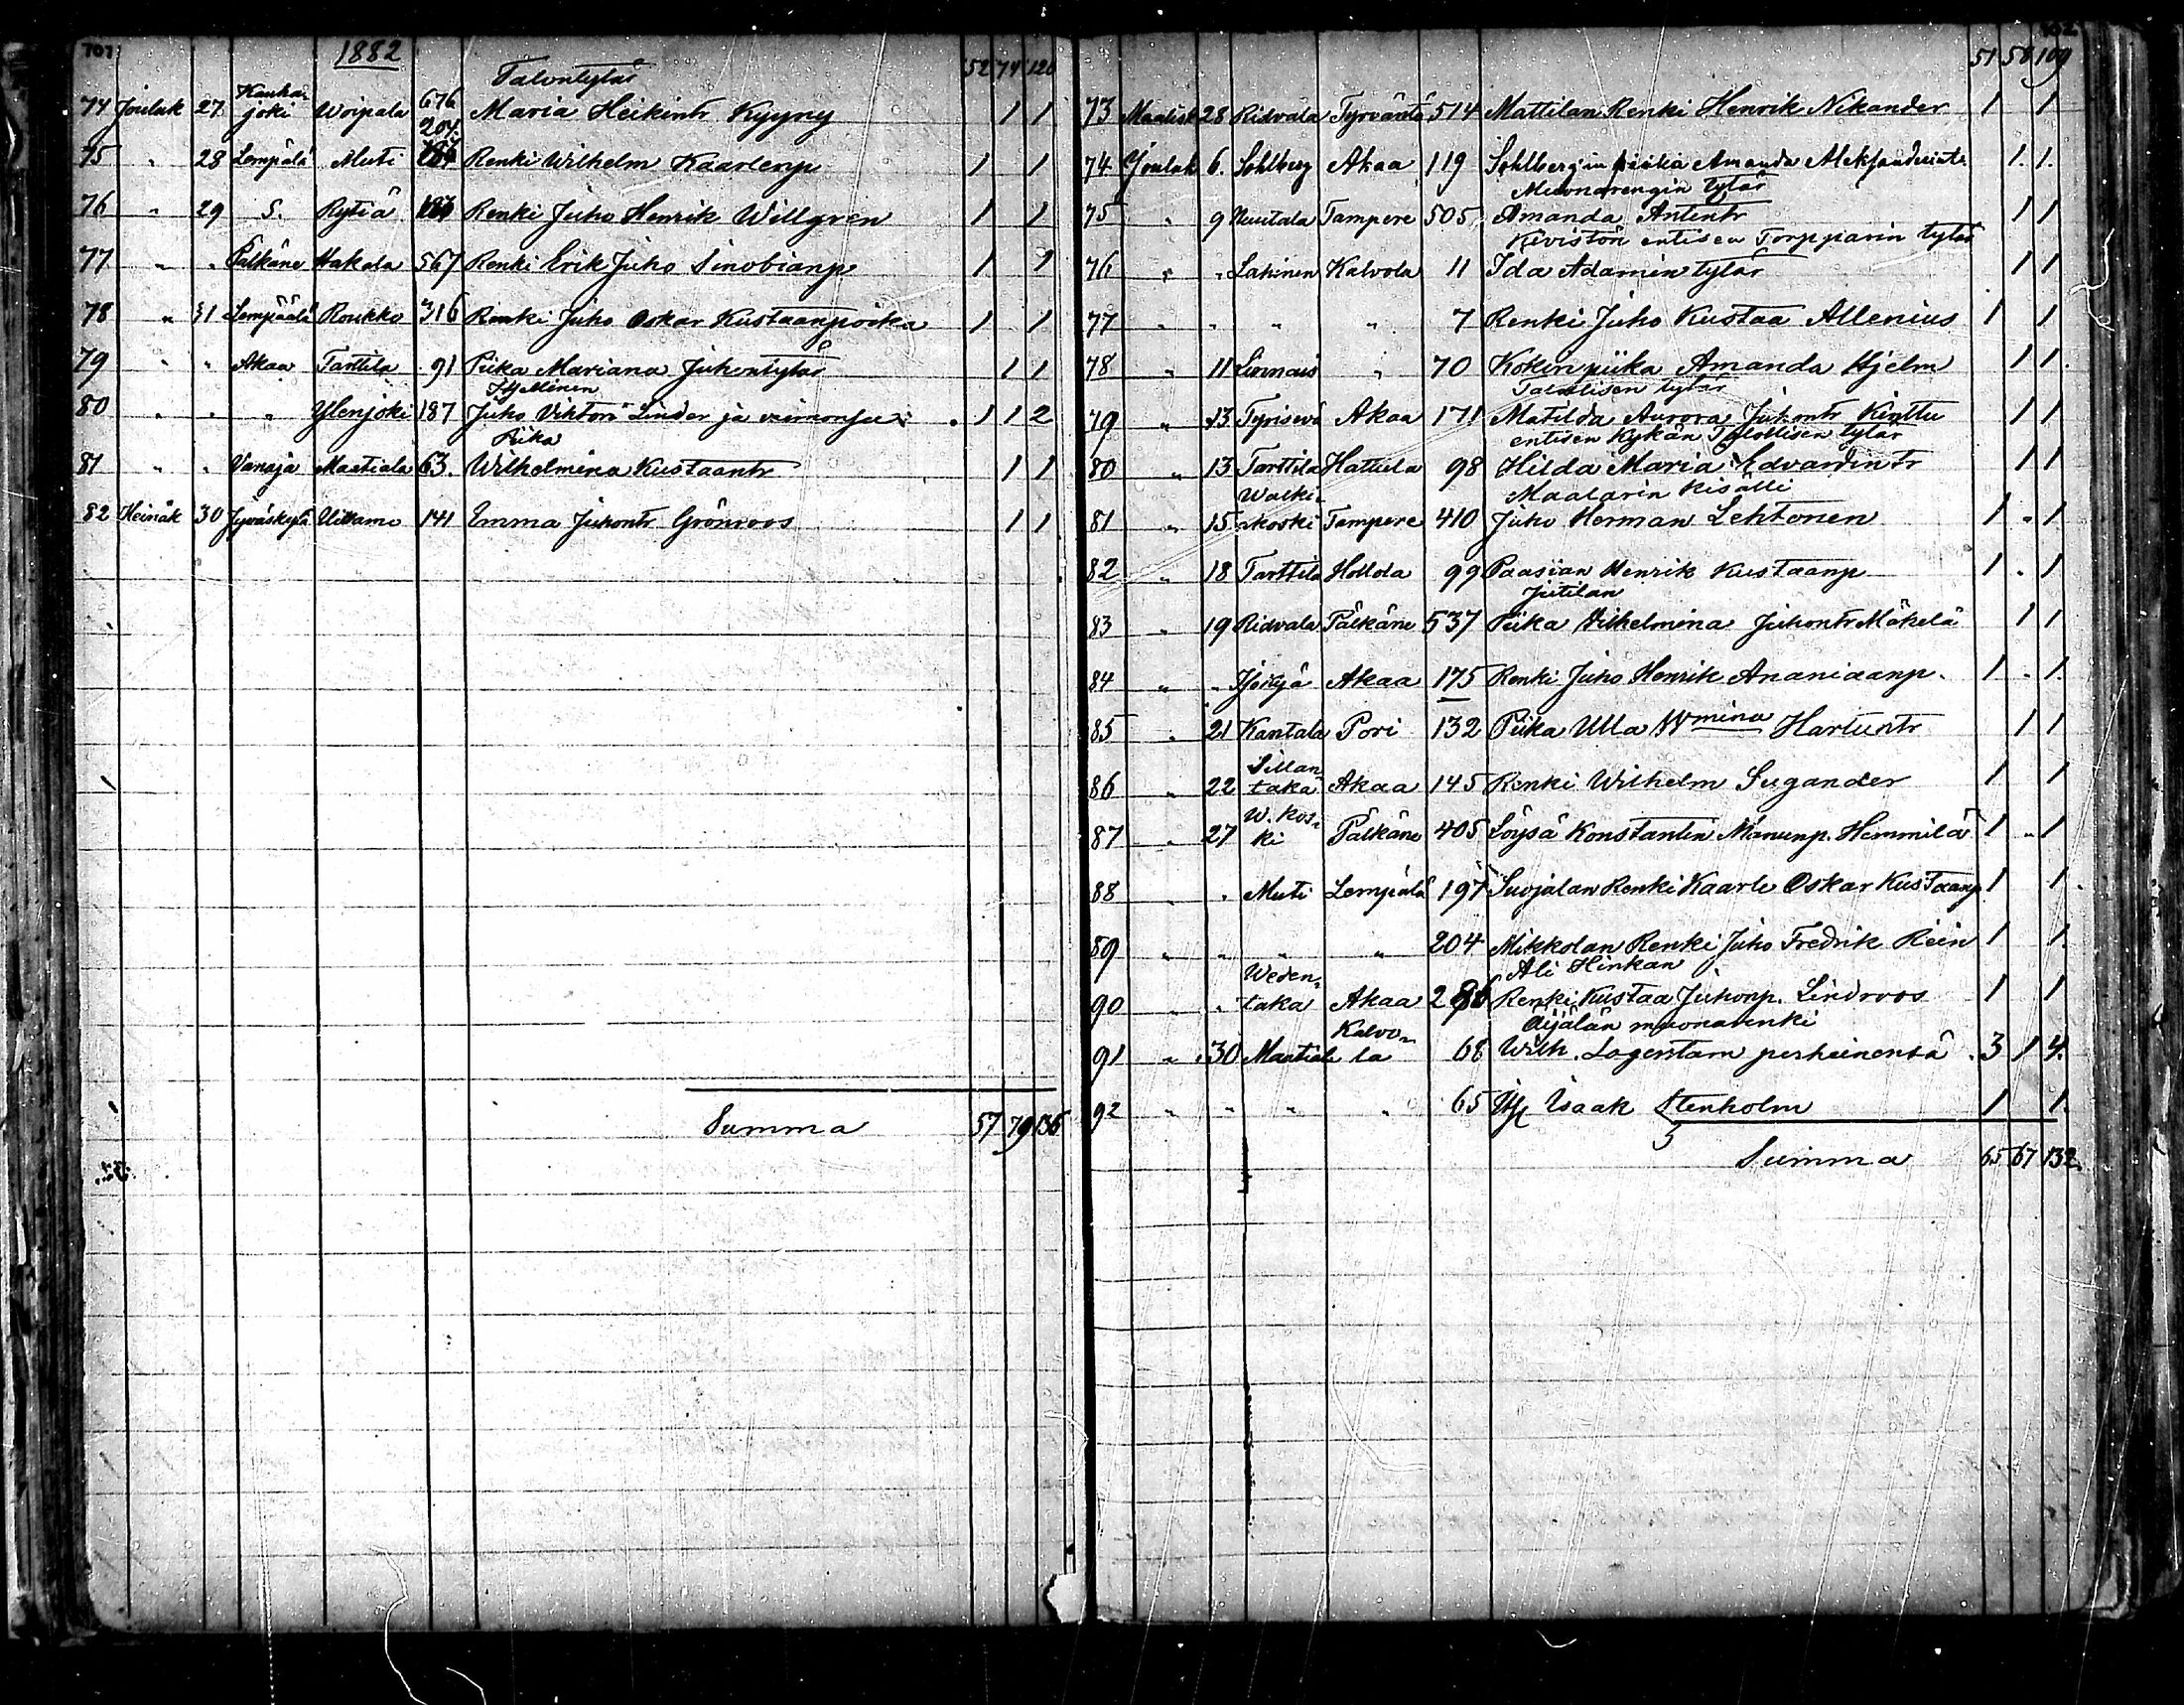 707 1882
52 74 126
Talontytär
74 Jouluk 27 Kauhajoki Woipala 676 Maria Heikintr Kyyny 1 1
204.
75 " 28 Lempälä Muti Renki Wilhelm Kaarlenp 1 1
76 " 29 S. Rytiä Renki Juho Henrik Willgren 1 1
77 " " Pälkäne Hakala 567 Renki Erik Juho Sinobianp 1 1
78 " 31 Lempäälä Roukko 316 Renki Juho Oskar Kustaanpoika 1 1
79 " " Akaa Tarttila 91 Piika Mariana Juhontytär 1 1
Itsellinen
80 " " " Ylenjoki 187 Juho Viktori Linder ja vaimonsa 1 1 2
Piika
81 " " Vanaja Maatiala 63. Wilhelmina Kustaantr 1 1
82 Heinäk 30 Jyväskylä Uittamo 141 Emma Juhontr Grönroos 1 1
Summa 57 79 136
51 58 109
73 Maalisk 28 Ridvala Tyrväntö 514 Mattilan Renki Henrik Nikander 1 1
74 Jouluk 6. Sohlberg Akaa 119 Sohlbergin piika Amanda Aleksanderintr 1. 1.
Muonarengin tytär
75 " 9 Uuutala Tampere 505 Amanda Antintr 1 1
Kivistön entisen Torpparin tytär
76 " " Lahinen Kalvola 11 Ida Adamintytär 1 1
77 " " " " 7 Renki Juho Kustaa Allenius 1 1
78 " 11 Linnais " 70 Kokin piika Amanda Hjelm 1 1.
Talollisen tytär
79 " 13 Tyrisevä Akaa 171 Matilda Aurora Juhontr Kinttu 1 1
entisen Kykän Talollisen tytär
80 " 13 Tarttila Hattula 98 Hilda Maria Edvardintr 1 1
Maalarin kisälli
81 " 15 Walkiakoski Tampere 410 Juho Herman Lehtonen 1 " 1
82 " 18 Tarttila Hollola 99 Paasian Henrik Kustaanp 1 " 1
Jutilan
83 " 19 Ridvala Pälkäne 537 Piika Vilhelmina Juhontr Mäkelä 1 1
84 " " Akaa 175 Renki Juho Henrik Ananiaanp. 1 " 1.
85 " 21 Kantala Pori 132 Piika Ulla Wmina Hartuntr 1 1
86 " 22 Sillantaka Akaa 145 Renki Wilhelm Sugander 1 1
87 " 27 W. koski Pälkäne 405 Löysä Konstantin Manunp. Hemmilä 1 " 1
88 " " Muti Lempälä 197 Suojalan Renki Kaarle Oskar Kustaanp 1 1.
89 " " " " 204 Mikkolan Renki Juho Fredrik Rein 1 1.
Ali Hinkan
90 " " Wedentaka Akaa 286 Renki Kustaa Juhonp. Lindroos 1 1
Äijälän muonarenki
91 " 30 Maatiala Kalvola 68 Wilh. Lagerstam perheinensä 3 1 4.
92 " " " " 65 Itsl Isaak Stenholm 1 1.
Summa 65 67 132.